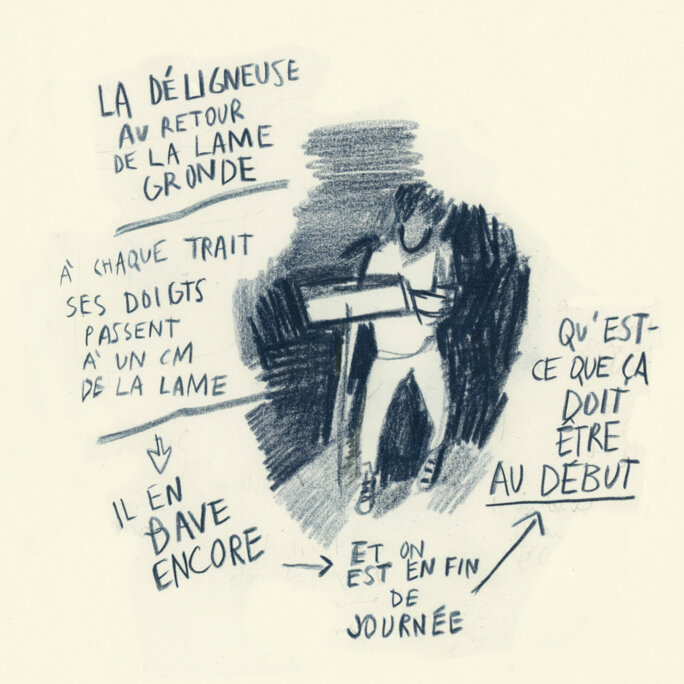 LA DÉLIGNEUSE
AU RETOUR
DE LA LAME
GRONDE
À CHAQUE TRAIT
SES DOIGTS
PASSENT
À UN CM
DE LA LAME
IL EN
BAVE
ENCORE
ET ON
EST EN FIN
DE
JOURNÉE
QU'EST-
CE QUE ÇA
DOIT
ÊTRE
AU DÉBUT